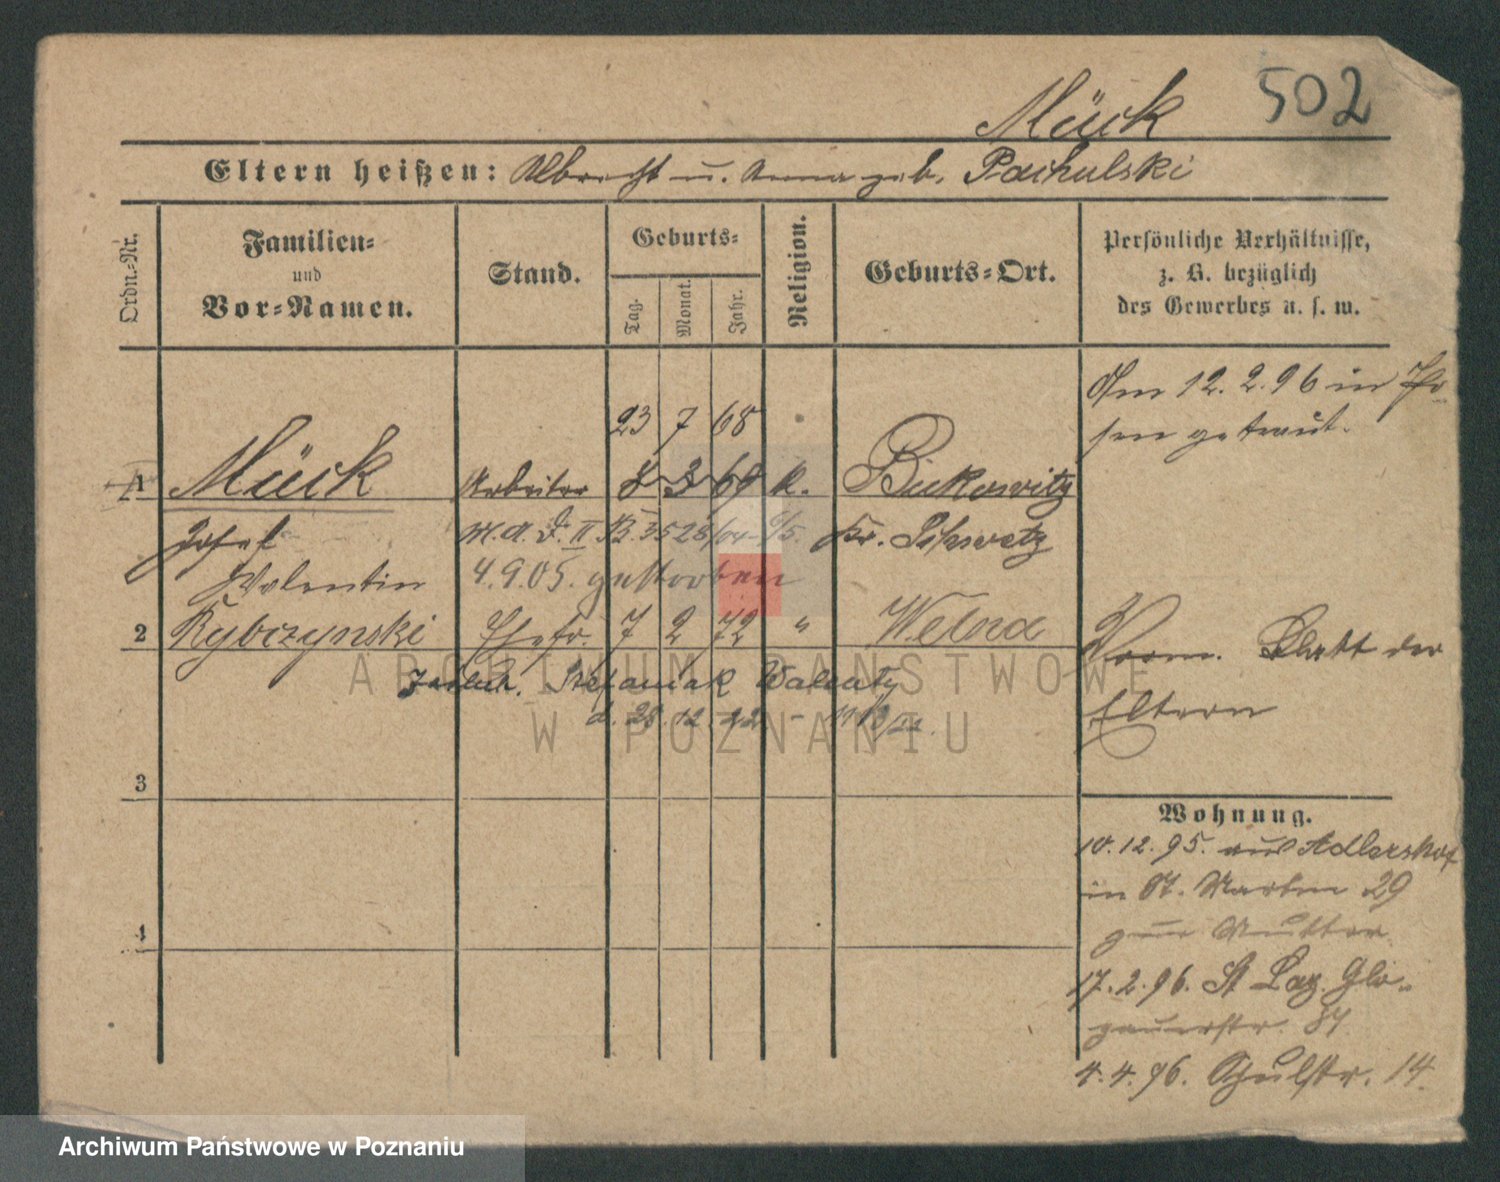 502
Mück
Eltern heißen: Albrecht u. Anna geb. Pachulski
Ordn.-Nr.
Familien-
und
Vor-Namen.
Stand.
Geburts-
Tag.
Monat.
Jahr.
Religion.
Geburts-Ort.
Persönliche Verhältnisse,
z. B. bezüglich
des Gewerbes u. s. w.
Am 12. 2. 96 in Po-
sen getraut.
23 7 68
1 Mück Arbeiter 8 3 64 k. Bukowitz
Josef M. A. II B. 3528/04 Kr. Schwetz
Valentin 4.9.05. gestorben
2 Rybczynski Ehefr. 7 2 72 " Welna
Stefaniak Walenty
d. 28. 12. 22
Vorm. Blatt der
Eltern
3
4
Wohnung.
10. 12. 95. aus Adlershof
in St. Martin 29
zur Mutter
17. 2. 96. St Laz. Glo-
gauerstr. 87
4. 4. 96. Schulstr. 14
ARCHIWUM PAŃSTWOWE
W POZNANIU
Archiwum Państwowe w Poznaniu